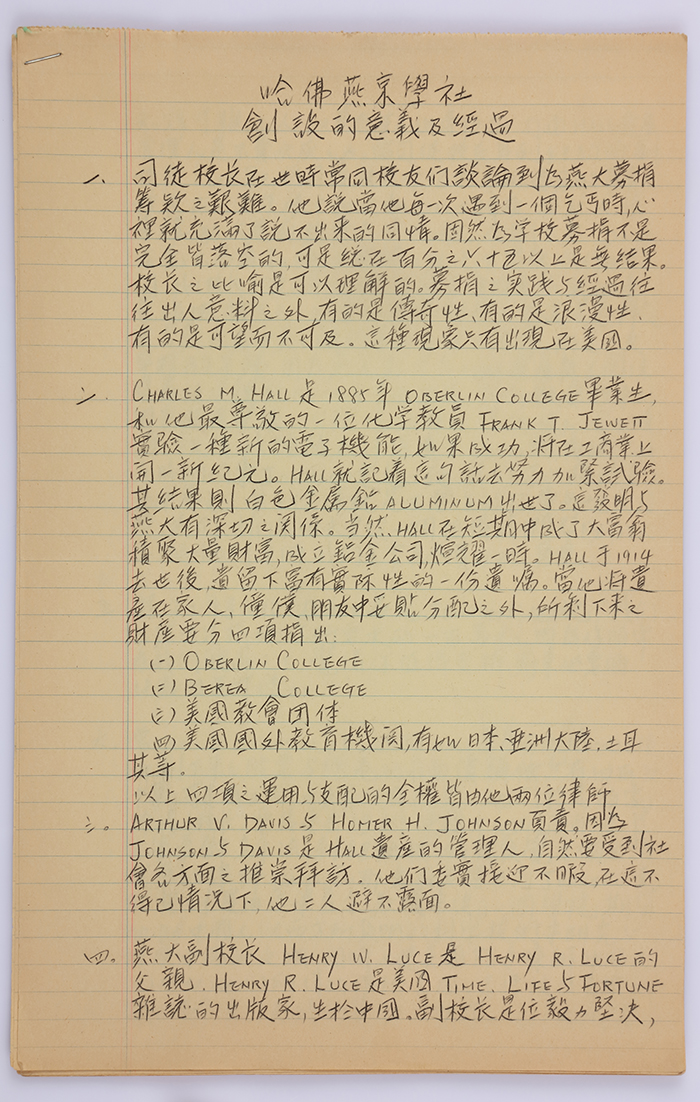 哈佛燕京學社
創設的意義及經過
一、司徒校长在世時常同校友们談論到为燕大募捐
筹欵之艱難。他說當他每一次遇到一個乞丐時,心
裡就充滿了說不出来的同情。固然为学校募捐不是
完全皆落空的,可是総在百分之六十五以上是無结果。
校长之比喻是可以理解的。募捐之实践与經過往
往出人意料之外,有的是傳奇性、有的是浪漫性、
有的是可望而不可及。這種現象只有出現在美國。
二、CHARLES M. HALL 是 1885年 OBERLIN COLLEGE 畢業生,
和他最尊敬的一位化学教員 FRANK T. JEWETT
實驗一種新的電子機能,如果成功,将在工商業上
開一新纪元。HALL 就記着這句話去努力加緊試驗。
其结果則白色金属鋁 ALUMINUM 出世了。這發明与
燕大有深切之関係。当然 HALL 在短期中成了大富翁
積聚大量財富,成立鋁金公司,煊耀一時。HALL 于 1914
去世後,遺留下富有實际性的一份遺嘱。當他将遺
產在家人、僮僕、朋友中妥貼分配之外,所剩下来之
財產要分四項捐出:
(一) OBERLIN COLLEGE
(二) BEREA COLLEGE
(三) 美國教會团体
(四) 美國國外教育機関,有如日本、亜洲大陸、土耳
其等。
以上四項之運用与支配的全權皆由他兩位律師
三。ARTHUR V. DAVIS 与 HOMER H. JOHNSON 負責。因为
JOHNSON 与 DAVIS 是 HALL 遺産的管理人,自然要受到社
會各方面之推崇拜訪.他们委實接迎不暇,在這不
得已情况下,他二人避不露面。
四。燕大副校长 HENRY W. LUCE 是 HENRY R. LUCE 的
父親.HENRY R. LUCE 是美國 TIME. LIFE 与 FORTUNE
雜誌的出版家,生於中國。副校长是位毅力堅决,